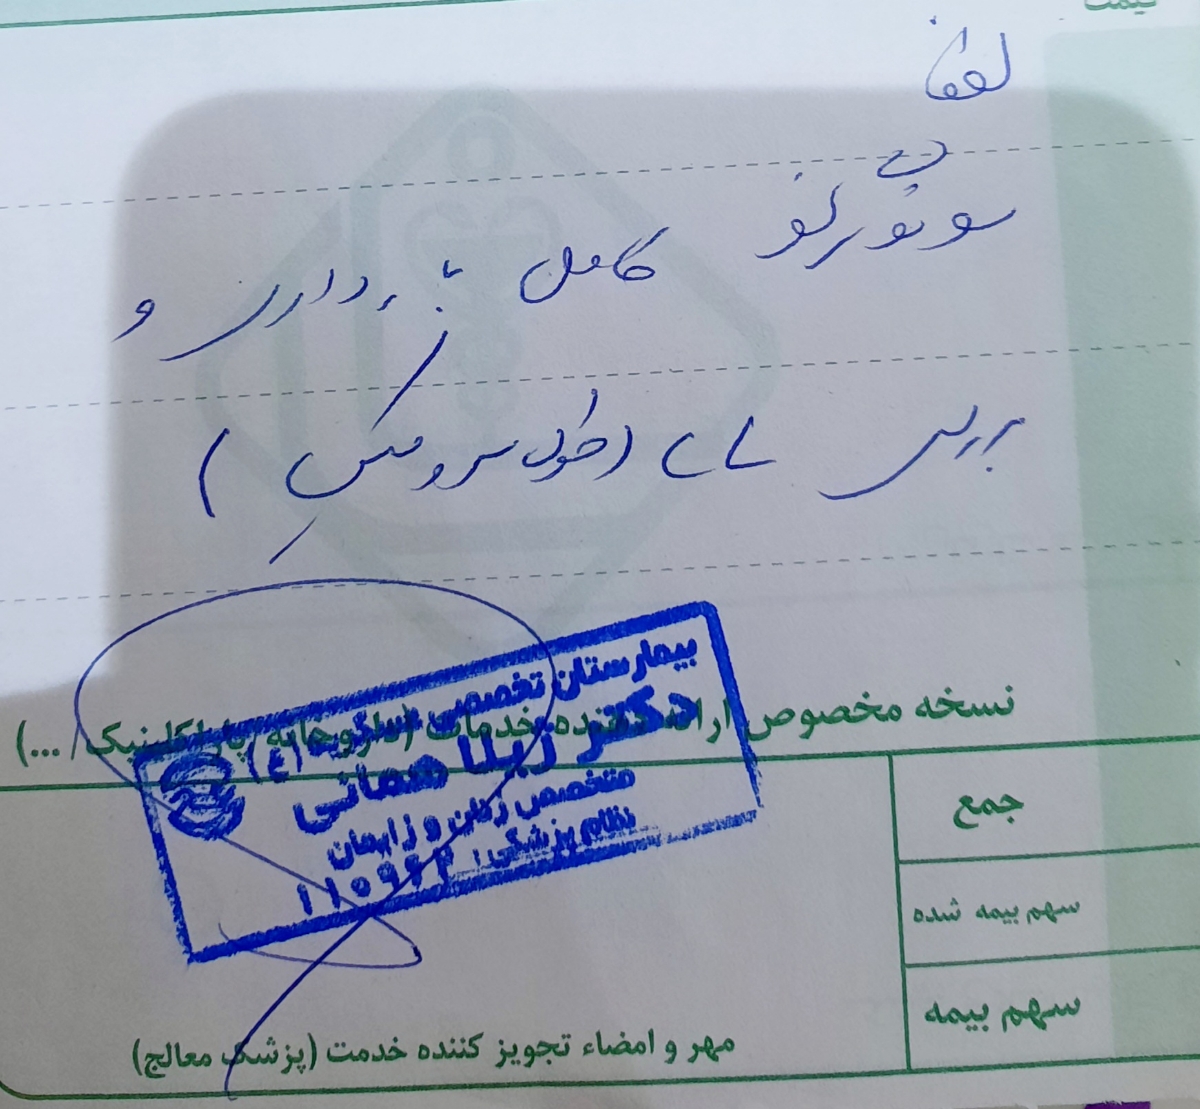 قیمت
لطفا
سونوگرافی کامل بارداری و
بررسی (طول سرویکس)
نسخه مخصوص ارائه دهنده خدمات (داروخانه/ پاراکلینیک/ ...)
بیمارستان تخصصی
دکتر زیلا همائی
متخصص زنان و زایمان
نظام پزشکی:
جمع
سهم بیمه شده
سهم بیمه
مهر و امضاء تجویز کننده خدمت (پزشک معالج)